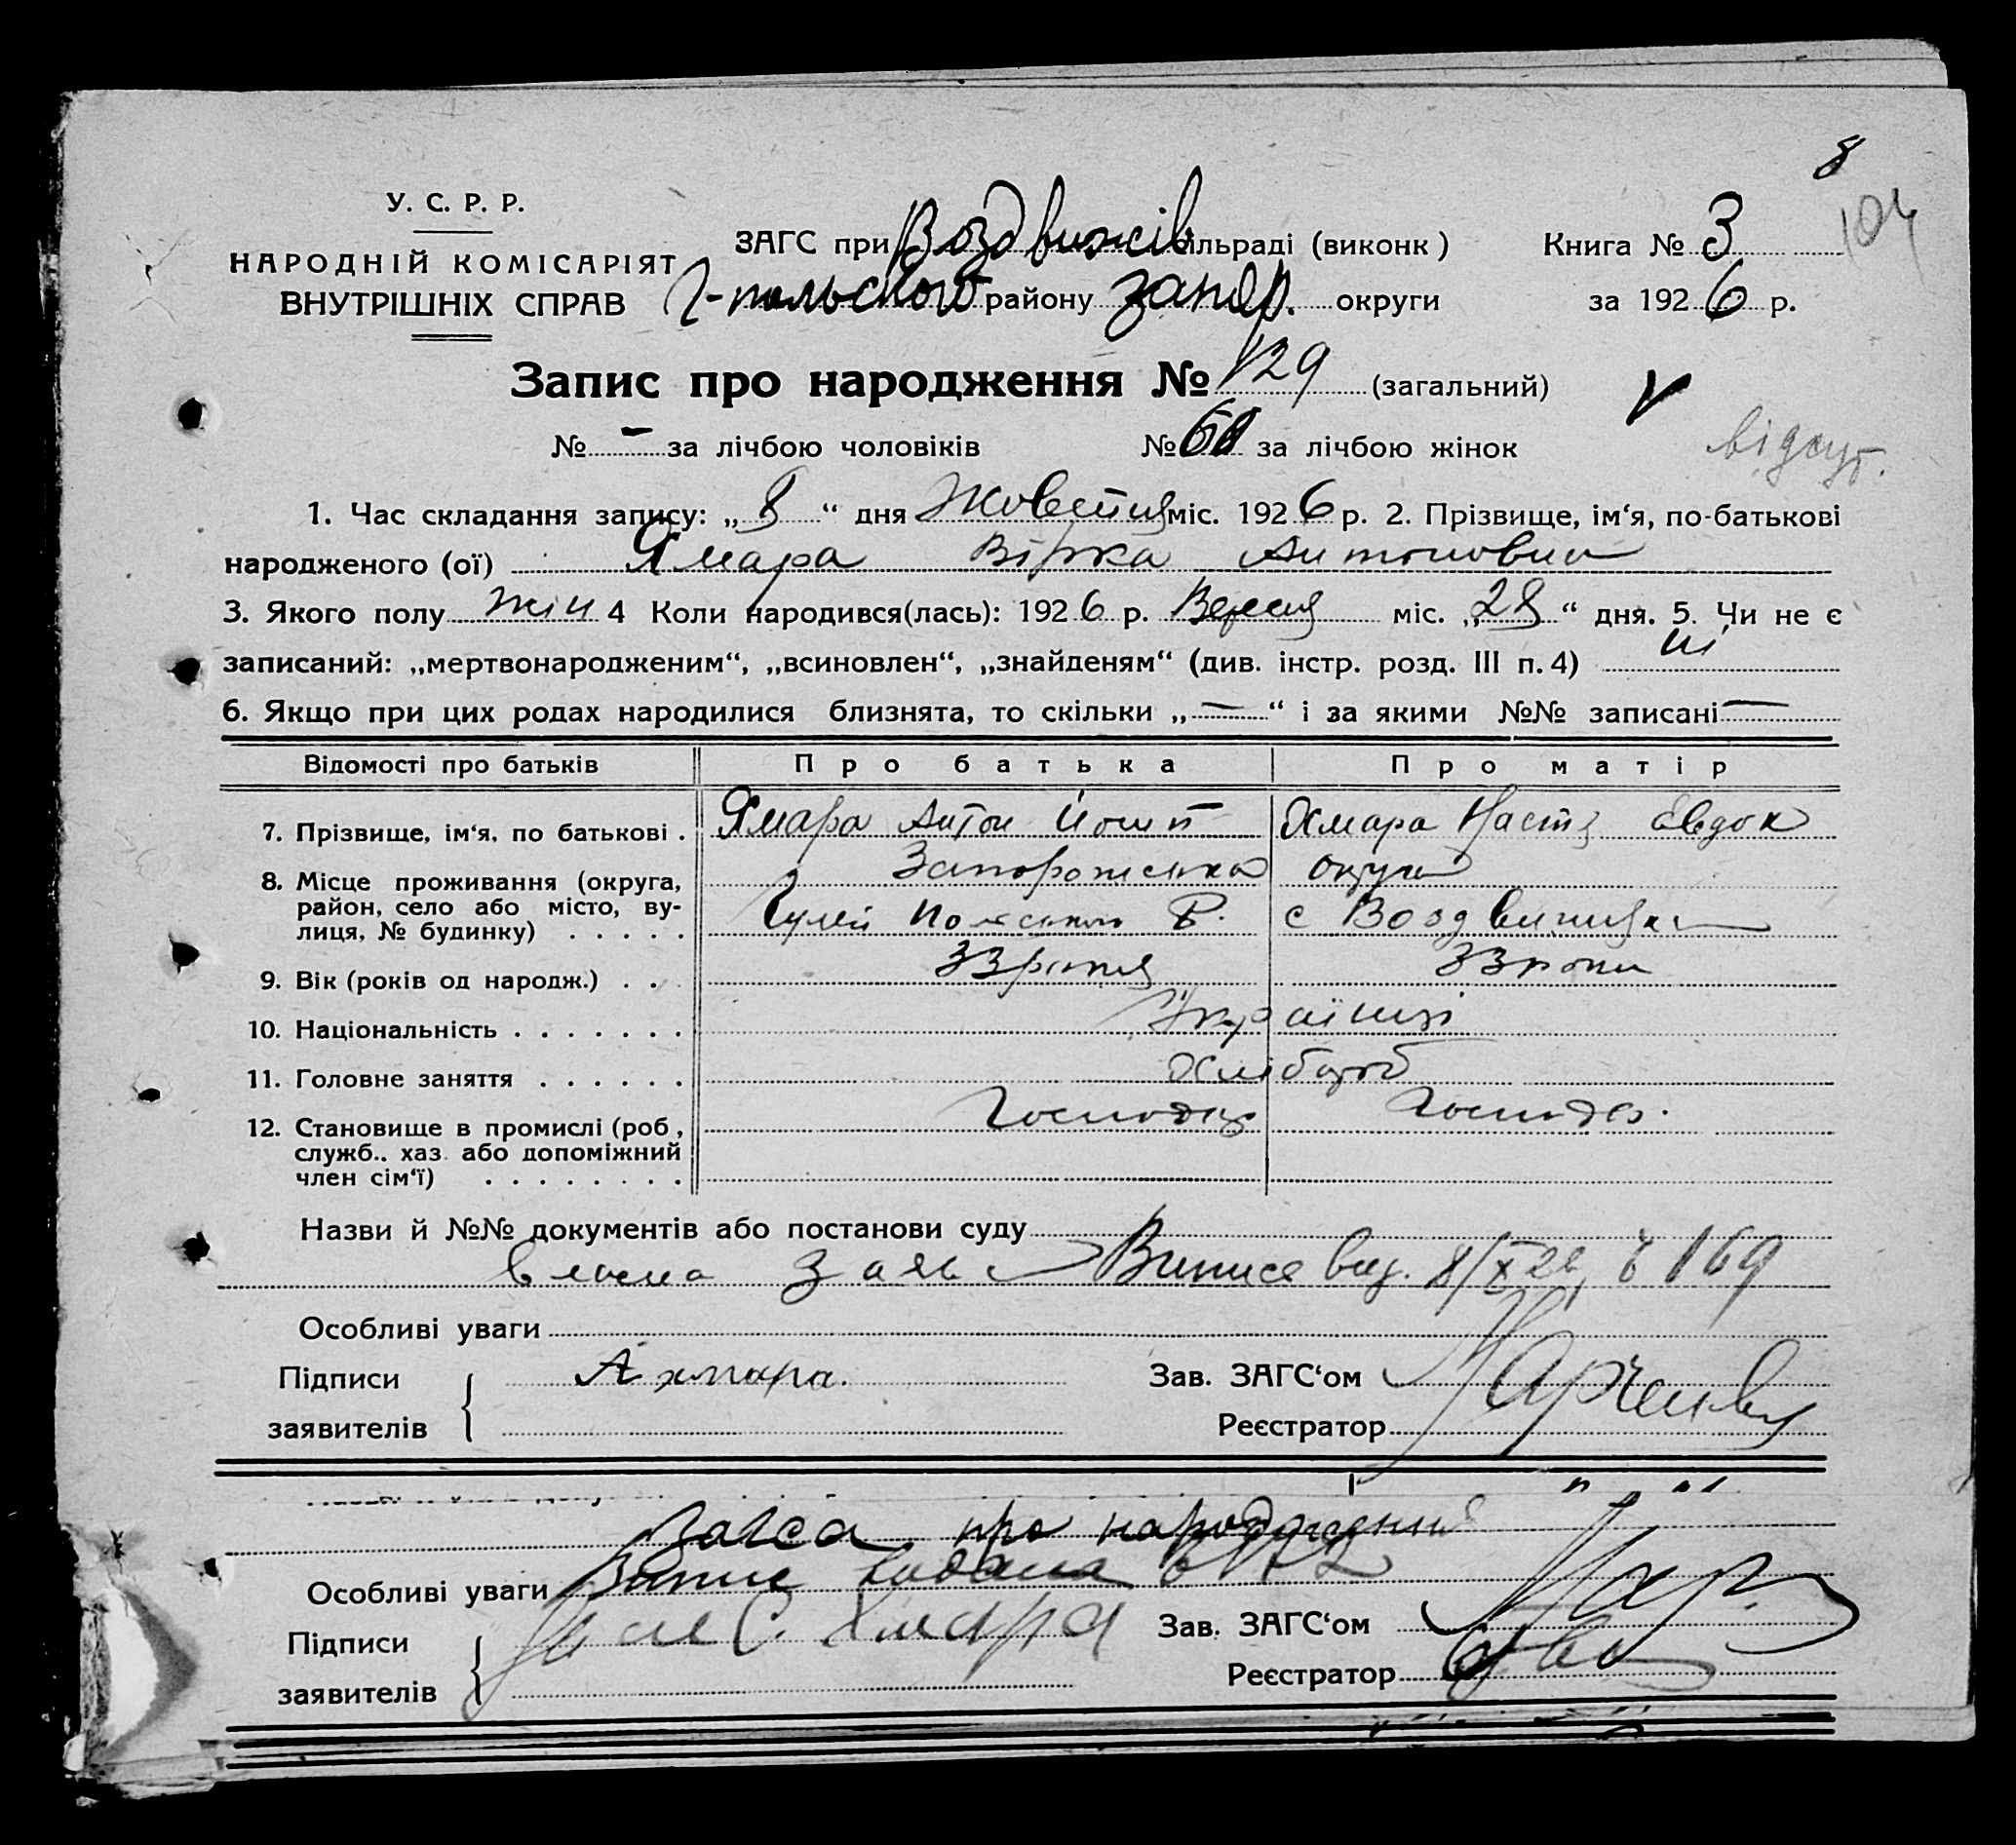 8
104
У. С. Р. Р.
НАРОДНІЙ КОМІСАРІЯТ
ВНУТРІШНІХ СПРАВ
ЗАГС при Воздвижів сільраді (виконк)
Г-польського району Запор. округи
Книга № 3
за 1926 р.
Запис про народження № 129 (загальний)
№ - за лічбою чоловіків № за лічбою жінок
відсут.
1. Час складання запису: „8“ дня Жовтня міс. 1926 р. 2. Прізвище, ім'я, по-батькові
народженого (ої) Хмара Вірка Антоновна
3. Якого полу жін 4 Коли народився(лась): 1926 р. Вересня міс. „28“ дня. 5. Чи не є
записаний: „мертвонародженим“, „всиновлен“, „знайденям“ (див. інстр. розд. III п. 4) ні
6. Якщо при цих родах народилися близнята, то скільки „—“ і за якими №№ записані —
Відомості про батьків Про батька Про матір
7. Прізвище, ім'я, по батькові . Хмара Антон Йосип Хмара Настя Євдок
8. Місце проживання (округа, Запорожська округа
район, село або місто, ву-
лиця, № будинку) . . . . . Гуляй Польського Р. с Воздвижівка
9. Вік (років од народж.) . . . 33 роки
10. Національність . . . . . . . Українці
11. Головне заняття . . . . . . Хлібороб
12. Становище в промислі (роб, Господар Господ.
служб.. хаз. або допоміжний
член сім'ї) . . . . . . . .
Назви й №№ документів або постанови суду
власна заява Виписе вид. 8/X 26, № 169
Особливі уваги
Підписи А хмара. Зав. ЗАГС'ом Харченко
заявителів Реєстратор
Загса про народження
Особливі уваги Випис видана
Підписи Хмара Зав. ЗАГС'ом
заявителів Реєстратор